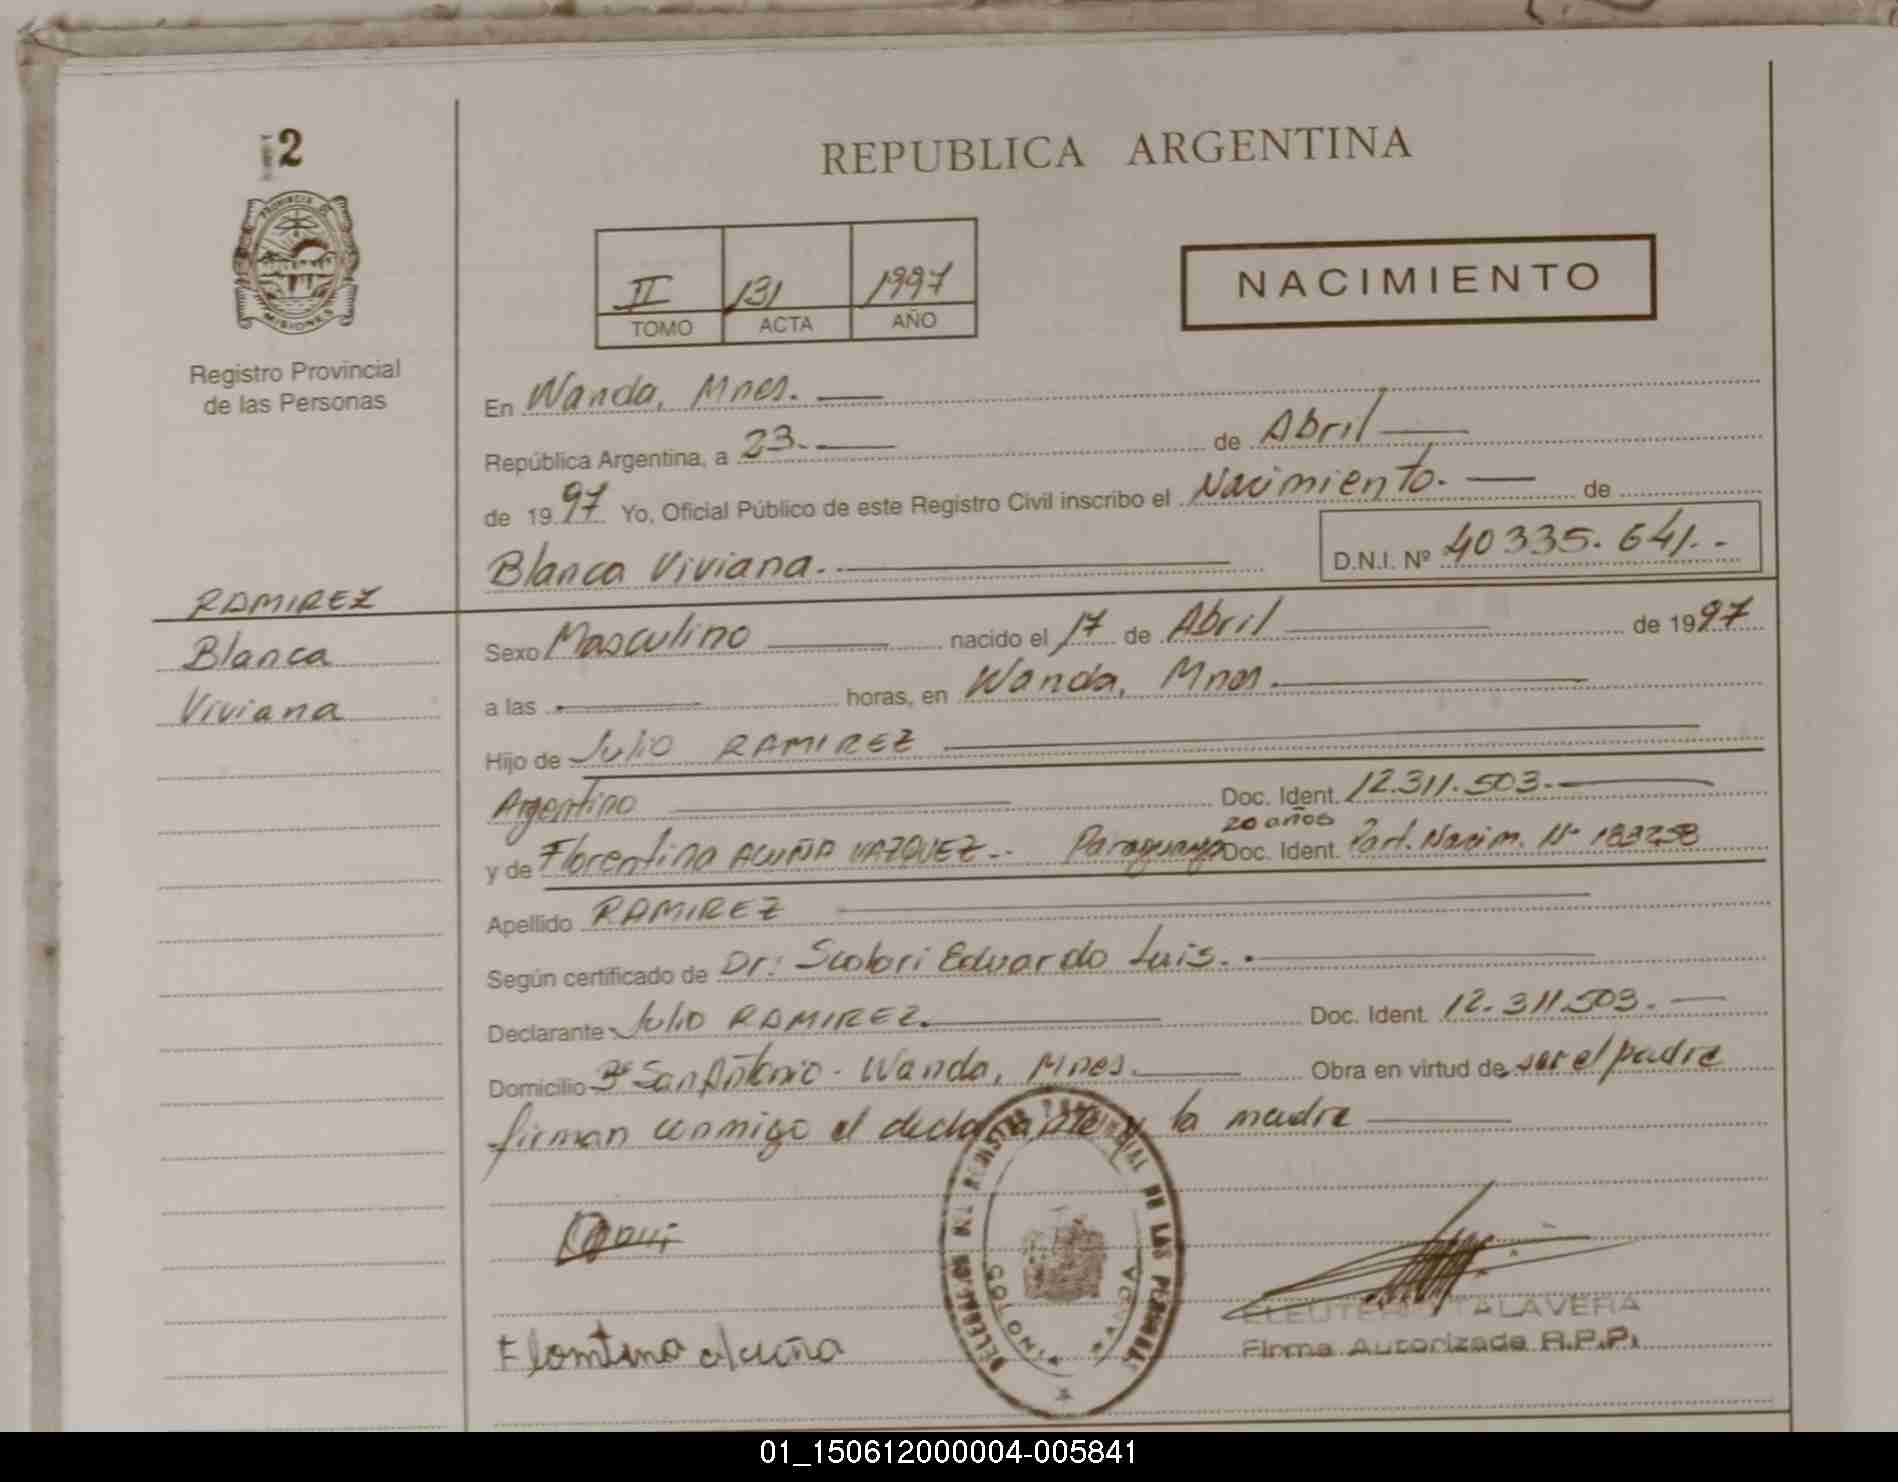 2
PROVINCIA DE
MISIONES
Registro Provincial
de las Personas
RAMIREZ
Blanca
Viviana
REPUBLICA ARGENTINA
II 131 1997
TOMO ACTA AÑO
NACIMIENTO
En Wanda, Mnes.
República Argentina, a 23. de Abril
de 1997 Yo, Oficial Público de este Registro Civil inscribo el Nacimiento. de
Blanca Viviana. D.N.I. Nº 40335.641.-
Sexo Masculino nacido el 17 de Abril de 1997
a las horas, en Wanda, Mnes.
Hijo de Julio RAMIREZ
Argentino Doc. Ident. 12.311.503.
20 años
y de Florentina ACUÑA VAZQUEZ.- Paraguaya Doc. Ident. Part. Nacim. Nº
Apellido RAMIREZ
Según certificado de Dr: Eduardo Luis.
Declarante Julio RAMIREZ. Doc. Ident. 12.311.503.
Domicilio Bº San Antonio - Wanda, Mnes. Obra en virtud de ser el padre
firman conmigo el declarante y la madre
REGISTRO PROVINCIAL DE LAS PERSONAS
WANDA
Florntina Acuña
ELEUTERIO TALAVERA
Firma Autorizada R.P.P.
01_150612000004-005841